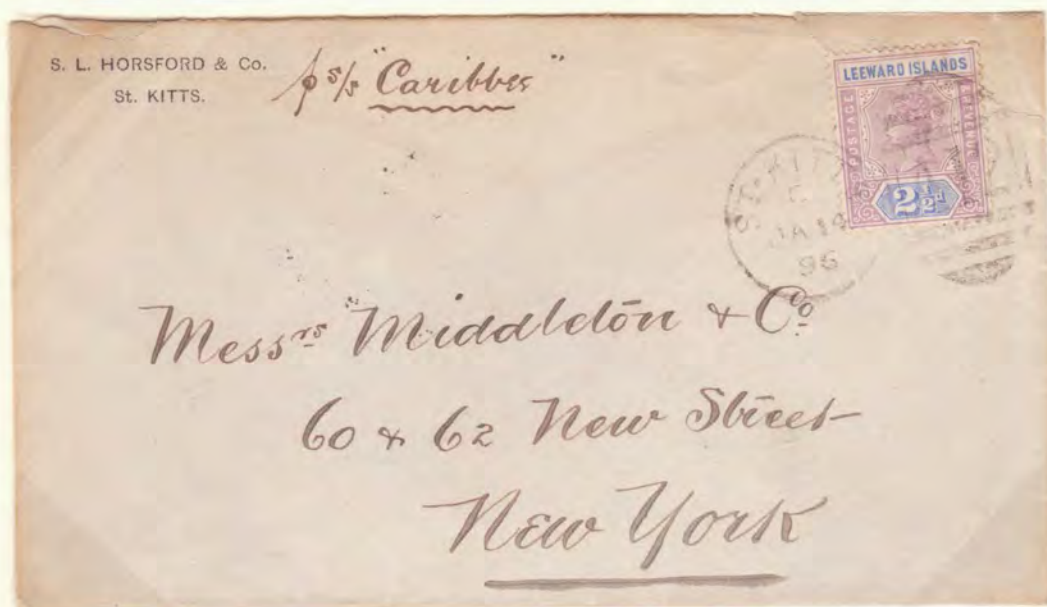 S. L. HORSFORD & Co.
St. KITTS.
p s/s "Caribbee"
LEEWARD ISLANDS
POSTAGE & REVENUE
2½d
ST. KITTS
JA 14
96
Messrs Middleton & Co.
60 & 62 New Street
New York